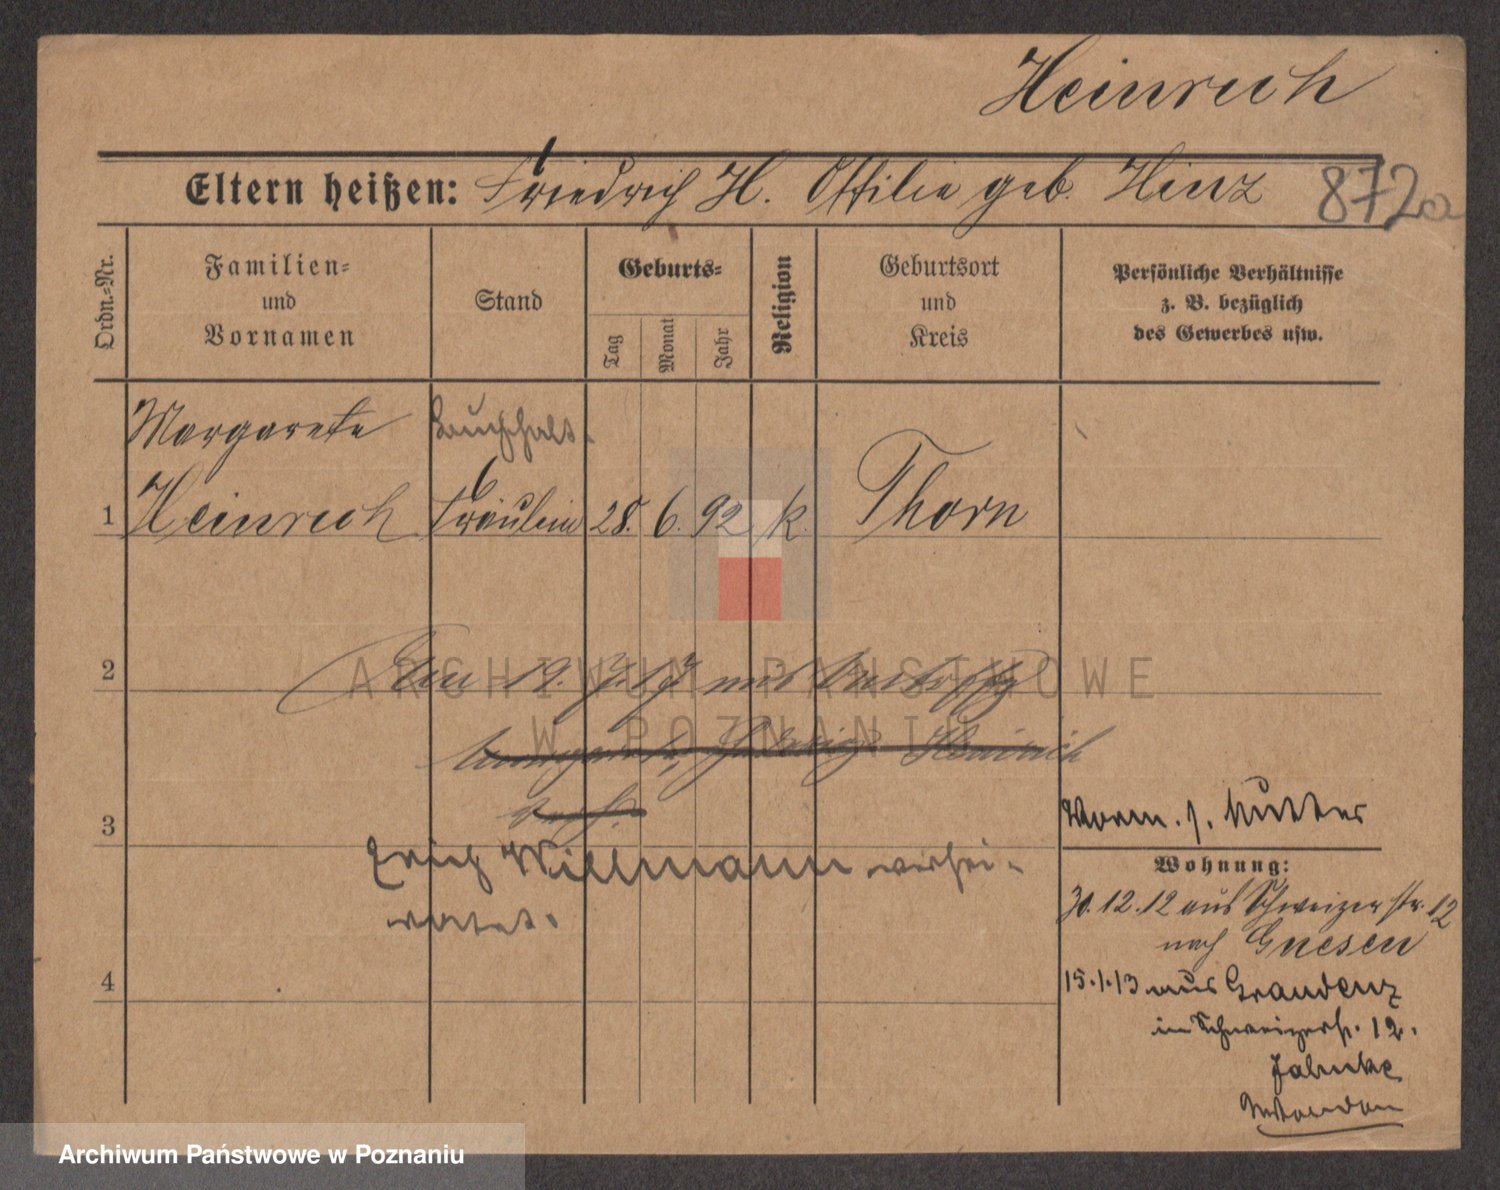 Heinrich
Eltern heißen: Friedrich H. Ottilie geb. Hinz
872a
Ordn.-Nr.
Familien-
und
Vornamen
Stand
Geburts-
Tag
Monat
Jahr
Religion
Geburtsort
und
Kreis
Persönliche Verhältnisse
z. B. bezüglich
des Gewerbes usw.
Margarete Haushalt-
1 Heinrich Fräulein 28. 6. 92 k. Thorn
2
Am 19. 7. 17 mit
ARCHIWUM PAŃSTWOWE
W POZNANIU
Heinrich
3
Vorm. s. Mutter
Erich Willmann verhei-
ratet.
Wohnung:
30.12.12 aus Schweizerstr. 12
nach Gnesen
4
15.1.13 aus Graudenz
in Schweizerstr. 12.
Jahnke
Archiwum Państwowe w Poznaniu